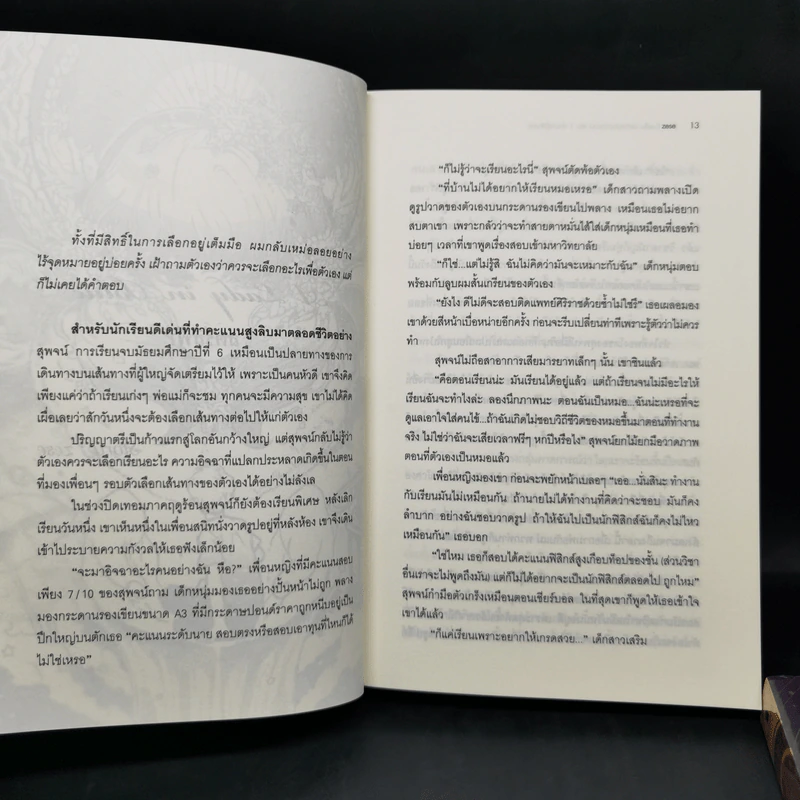 ทั้งที่มีสิทธิ์ในการเลือกอยู่เต็มมือ ผมกลับเหม่อลอยอย่าง
ไร้จุดหมายอยู่บ่อยครั้ง เฝ้าถามตัวเองว่าควรจะเลือกอะไรเพื่อตัวเอง แต่
ก็ไม่เคยได้คำตอบ
สำหรับนักเรียนดีเด่นที่ทำคะแนนสูงลิบมาตลอดชีวิตอย่าง
สุพจน์ การเรียนจบมัธยมศึกษาปีที่ 6 เหมือนเป็นปลายทางของการ
เดินทางบนเส้นทางที่ผู้ใหญ่จัดเตรียมไว้ให้ เพราะเป็นคนหัวดี เขาจึงคิด
เพียงแค่ว่าถ้าเรียนเก่งๆ พ่อแม่ก็จะชม ทุกคนจะมีความสุข เขาไม่ได้คิด
เผื่อเลยว่าสักวันหนึ่งจะต้องเลือกเส้นทางต่อไปให้แก่ตัวเอง
ปริญญาตรีเป็นก้าวแรกสู่โลกอันกว้างใหญ่ แต่สุพจน์กลับไม่รู้ว่า
ตัวเองควรจะเลือกเรียนอะไร ความอิจฉาที่แปลกประหลาดเกิดขึ้นในตอน
ที่มองเพื่อนๆ รอบตัวเลือกเส้นทางของตัวเองได้อย่างไม่ลังเล
ในช่วงปิดเทอมภาคฤดูร้อนสุพจน์ก็ยังต้องเรียนพิเศษ หลังเลิก
เรียนวันหนึ่ง เขาเห็นหนึ่งในเพื่อนสนิทนั่งวาดรูปอยู่ที่หลังห้อง เขาจึงเดิน
เข้าไประบายความกังวลให้เธอฟังเล็กน้อย
“จะมาอิจฉาอะไรคนอย่างฉัน หือ?” เพื่อนหญิงที่มีคะแนนสอบ
เพียง 7/10 ของสุพจน์ถาม เด็กหนุ่มมองเธออย่างปั้นหน้าไม่ถูก พลาง
มองกระดานรองเขียนขนาด A3 ที่มีกระดาษปอนด์ราคาถูกหนีบอยู่เป็น
ปึกใหญ่บนตักเธอ “คะแนนระดับนาย สอบตรงหรือสอบเอาทุนที่ไหนก็ได้
ไม่ใช่เหรอ”
13
“ก็ไม่รู้ว่าจะเรียนอะไรนี่” สุพจน์ตัดพ้อตัวเอง
“ที่บ้านไม่ได้อยากให้เรียนหมอเหรอ” เด็กสาวถามพลางเปิด
ดูรูปวาดของตัวเองบนกระดานรองเขียนไปพลาง เหมือนเธอไม่อยาก
สบตาเขา เพราะกลัวว่าจะทำสายตาหมั่นไส้ใส่เด็กหนุ่มเหมือนที่เธอทำ
บ่อยๆ เวลาที่เขาพูดเรื่องสอบเข้ามหาวิทยาลัย
“ก็ใช่...แต่ไม่รู้สิ ฉันไม่คิดว่ามันจะเหมาะกับฉัน” เด็กหนุ่มตอบ
พร้อมกับลูบผมสั้นเกรียนของตัวเอง
“ยังไง ดีไม่ดีจะสอบติดแพทย์ศิริราชด้วยซ้ำไม่ใช่รึ” เธอเผลอมอง
เขาด้วยสีหน้าเบื่อหน่ายอีกครั้ง ก่อนจะรีบเปลี่ยนท่าทีเพราะรู้ตัวว่าไม่ควร
ทำ
สุพจน์ไม่ถือสาอาการเสียมารยาทเล็กๆ นั้น เขาชินแล้ว
“คือตอนเรียนน่ะ มันเรียนได้อยู่แล้ว แต่ถ้าเรียนจบไม่มีอะไรให้
เรียนฉันจะทำไงล่ะ ลองนึกภาพนะ ตอนฉันเป็นหมอ...ฉันน่ะเหรอที่จะ
ดูแลเอาใจใส่คนไข้...ถ้าฉันเกิดไม่ชอบวิถีชีวิตของหมอขึ้นมาตอนที่ทำงาน
จริง ไม่ใช่ว่าฉันจะเสียเวลาฟรีๆ หกปีหรือไง” สุพจน์ยกไม้ยกมือวาดภาพ
ตอนที่ตัวเองเป็นหมอแล้ว
เพื่อนหญิงมองเขา ก่อนจะพยักหน้าเบลอๆ “เออ...นั่นสินะ ทำงาน
กับเรียนมันไม่เหมือนกัน ถ้านายไม่ได้ทำงานที่คิดว่าจะชอบ มันก็คง
ลำบาก อย่างฉันชอบวาดรูป ถ้าให้ฉันไปเป็นนักฟิสิกส์ฉันก็คงไม่ไหว
เหมือนกัน” เธอบอก
“ใช่ไหม เธอก็สอบได้คะแนนฟิสิกส์สูงเกือบท็อปของชั้น (ส่วนวิชา
อื่นเราจะไม่พูดถึงมัน) แต่ก็ไม่ได้อยากจะเป็นนักฟิสิกส์ตลอดไป ถูกไหม”
สุพจน์กำมือตัวเกร็งเหมือนตอนเชียร์บอล ในที่สุดเขาก็พูดให้เธอเข้าใจ
เขาได้แล้ว
“ก็แค่เรียนเพราะอยากให้เกรดสวย...” เด็กสาวเสริม